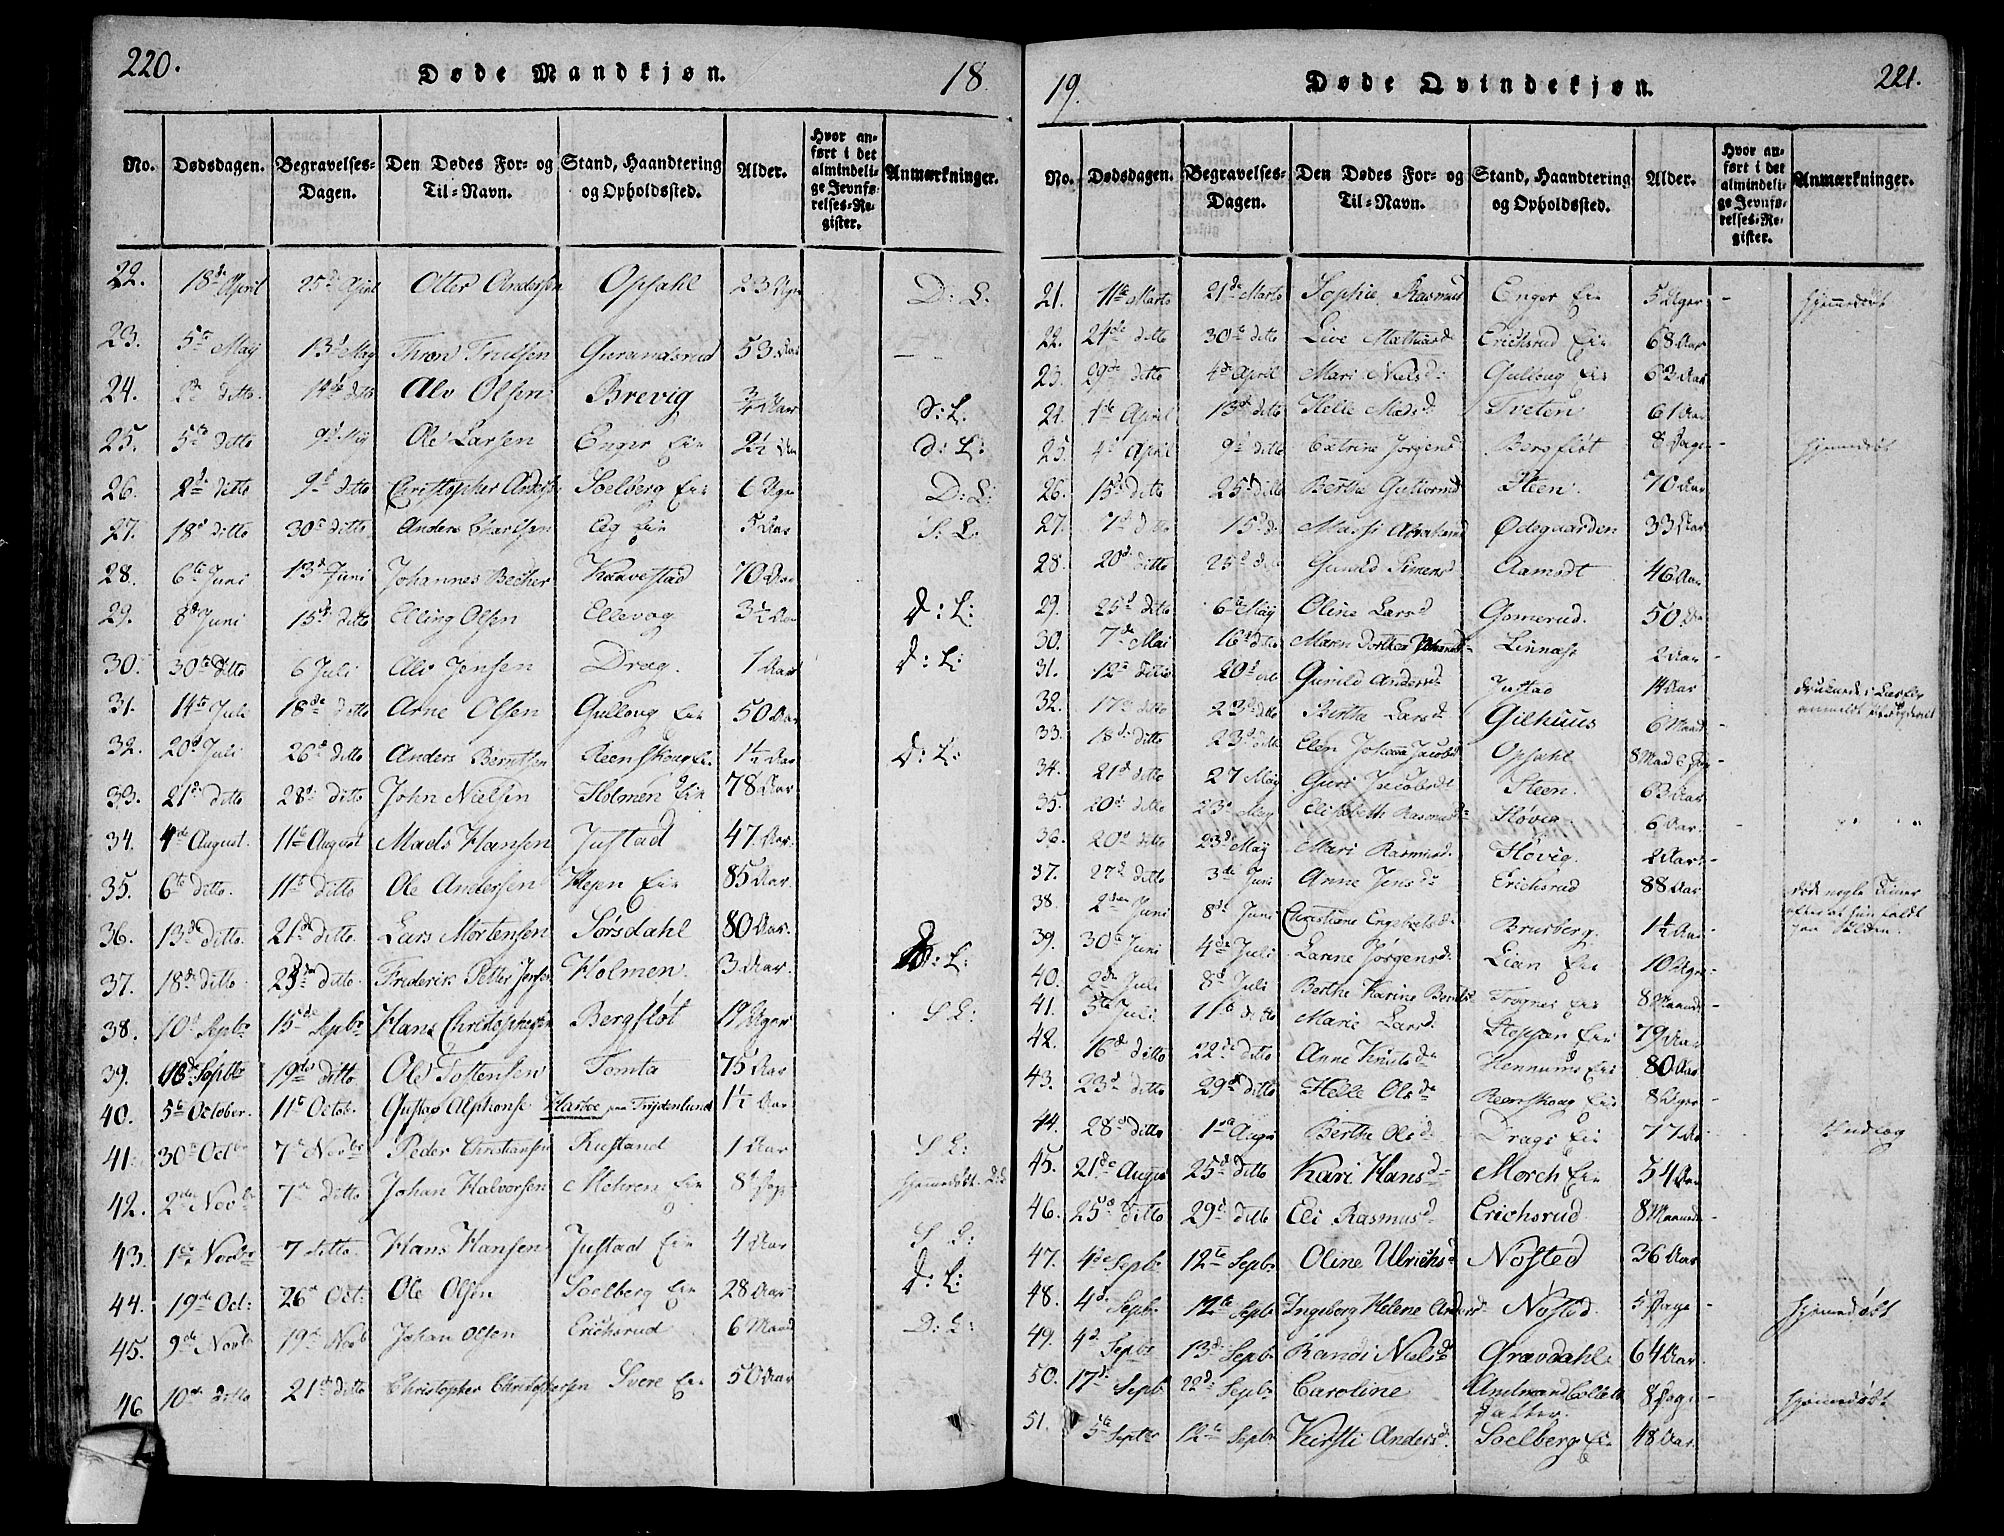 220.
Døde Mandkjøn.
18
No. Dødsdagen. Begravelses-Dagen. Den Dødes For- og Til-Navn. Stand, Haandtering og Opholdssted. Alder. Hvor anført i det almindelige Jevnførelses-Register. Anmærkninger.
22. 18de April 25de April Otter Andersen Opsahl 23 D: L:
23. 5te Maij 13d Maij Thron Trulsen 53 Aar
24. ditto 14de ditto Alv Olsen Brevig 3/4 Aar S: L:
25. 5te ditto 9d Maij Ole Larsen Enger Eie 2½ d: L:
26. 2de ditto 9d ditto Christopher Anders Solberg Eie D: L:
27. 18d ditto 30d ditto Anders Charlsen Eeg Eie 5 Aar S: L:
28. 6te Juni 13d Juni Johannes Becher Kaavestad 70 Aar
29. 8d Juni 15d ditto Elling Olsen Ellevog 3½ Aar d: L:
30. 30te ditto 6 Juli Ole Jensen Drag. 1 Aar d: L:
31. 14te Juli 18de ditto Arne Olsen Gulloug Eie 50 Aar
32. 20d Juli 26d ditto Anders Berntsen Reenskoug Ei. 1½ Aar d: L:
33. 21d ditto 28d ditto John Nielsen Holmen Eie 78 Aar
34. 4de August. 11te August Mads Hansen Justad 47 Aar.
35. 6te ditto. 11te ditto Ole Andersen Hejen Eie 85 Aar
36. 13d ditto. 21de ditto. Lars Mortensen Sørsdahl 80 Aar.
37. 18de ditto. 25de ditto. Frederik Petter Jensen Holmen. 3 Aar. L:
38. 10d Sepbr 15de Sepbr Hans Christophersen Bergfløt 19 Uger S L:
39. 13d Septbr 19de ditto Ole Tostensen Tomta 75 Aar
40. 5te October. 11te Octob. Gustav Alphonse paa Frydenlund 1½ Aar
41. 30te Octbr 7de Novbr Peder Christiansen Rustand 1 Aar S L:
42. 2den Novbr 7de ditto Johan Halvorsen Mehren Eie 8 Dage hjemmedøbt.
43. 1te Novbr 7 ditto Hans Hansen Justad Eie 4 Aar S L:
44. 19de Oct: 26d Oct: Ole Olsen Soelberg Eie 28 Aar d: L:
45. 9de Novbr 19d Novb Johan Olsen Erichsrud 6 Maand D: L:
46 10de ditto 21de ditto Christopher Christophersen Svere Eie 50 Aar
19.
Døde Qvindekjøn.
221.
No. Dødsdagen. Begravelses-Dagen. Den Dødes For- og Til-Navn. Stand, Haandtering og Opholdssted. Alder. Hvor anført i det almindelige Jevnførelses-Register. Anmærkninger.
21. 11te Marts 21de Marts Sophie Rasmusd Enger Eie 5 Uger hjemmedøbt
22. 24de ditto 30te ditto Live Mathiasd Erichsrud Eie 68 Aar
23. 29de ditto 4d April Mari Nielsd: Gulloug Eie 62 Aar
24. 1te April 13de ditto Helle Madsd Tveten 61 Aar
25. 4d April 9d ditto Catrine Jørgensd Bergfløt 8 Dage hjemmedøbt
26. 15d ditto 25d ditto Berthe Guttormsd Steen. 70 Aar
27. 7d ditto 15d d: Massi Abrahamsd Ødegaarden 33 Aar
28. 20d ditto 25d d: Gunild Simensd Aamodt 46 Aar
29. 25d ditto 6te Maij Oline Larsd Gomerud. 50 Aar
30. 7de Mai 16d ditto Maren Dorthea Linnæs 2 Aar
31. 12d ditto 20d do Gunild Andersd Justad 14 Aar druknede i
32. 17de ditto 23d ditto Berthe Larsd Gilhuus 6 Maad
33. 18d ditto 23d ditto Elen Johanne Jacobsd Opsahl 8 Maad
34. 21d ditto 27 Maij Guri Jacobsd Steen. 63 Aar
35. 20d ditto 23d Maij Elisabeth Rasmusd Høvig 6 Aar.
36. 20d ditto 23d Maij Mari Rasmusd. Høvig. 2 Aar.
37. 27d ditto 3de Juni Anne Jensd Erichsrud 88 Aar døde nogle Timer efter at hun faldt
38. 2den Juni 8d Juni Christiane Engebretsd. Brusberg. 1½ Aar
39. 30te Juni 4de Juli Lanne Jørgensd. Lian Eie 10 Uger
40. 2den Juli 8d Juli Berthe Karine Berntsd. Eie 8 Maaned
41. 5te Juli 11te ditto Marie Larsd. Stoppen Eie 79 Aar
42. 16d ditto 22de ditto Anne Knutsd. Hennums Eie 80 Aar
43. 23d ditto 29d ditto Helle Olsd Reenskoug Eie 8 Uger
44. 28d ditto 1te Augu Berthe Olsd: Drags Eie 77 Aar Indlog
45. 21de August 25d ditto Kari Hansd Morch Eie 54 Aar
46. 25d ditto 29d ditto Eli Rasmusd. Erichsrud. 8 Maaned
47. 4de Sepbr 12te Sepbr Oline Ulrichsd Nøsted 36 Aar
48. 4d Sepbr 12te Sepbr Ingeborg Helene Andersd Nøsted. 5 Dage hjemmedøbt
49. 4d Sepbr 13d Sepbr Randi Nielsd Gravdahl 64 Aar
50. 17d Sepbr 22d Sepbr Caroline Amtmand Colletts Datter. 8 Dage hjemmedøbt
51. 5te Septbr 12te Sepbr Kirsti Andersd. Soelberg Eie 48 Aar.